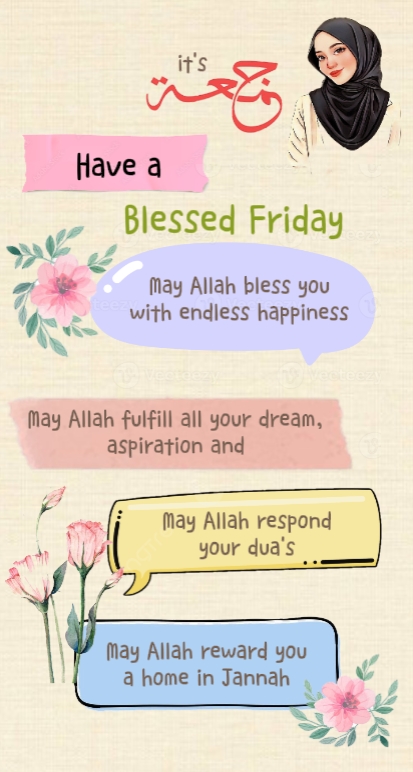 it's
جمعة
Have a
Blessed Friday
May Allah bless you
with endless happiness
May Allah fulfill all your dream,
aspiration and
May Allah respond
your dua's
May Allah reward you
a home in Jannah